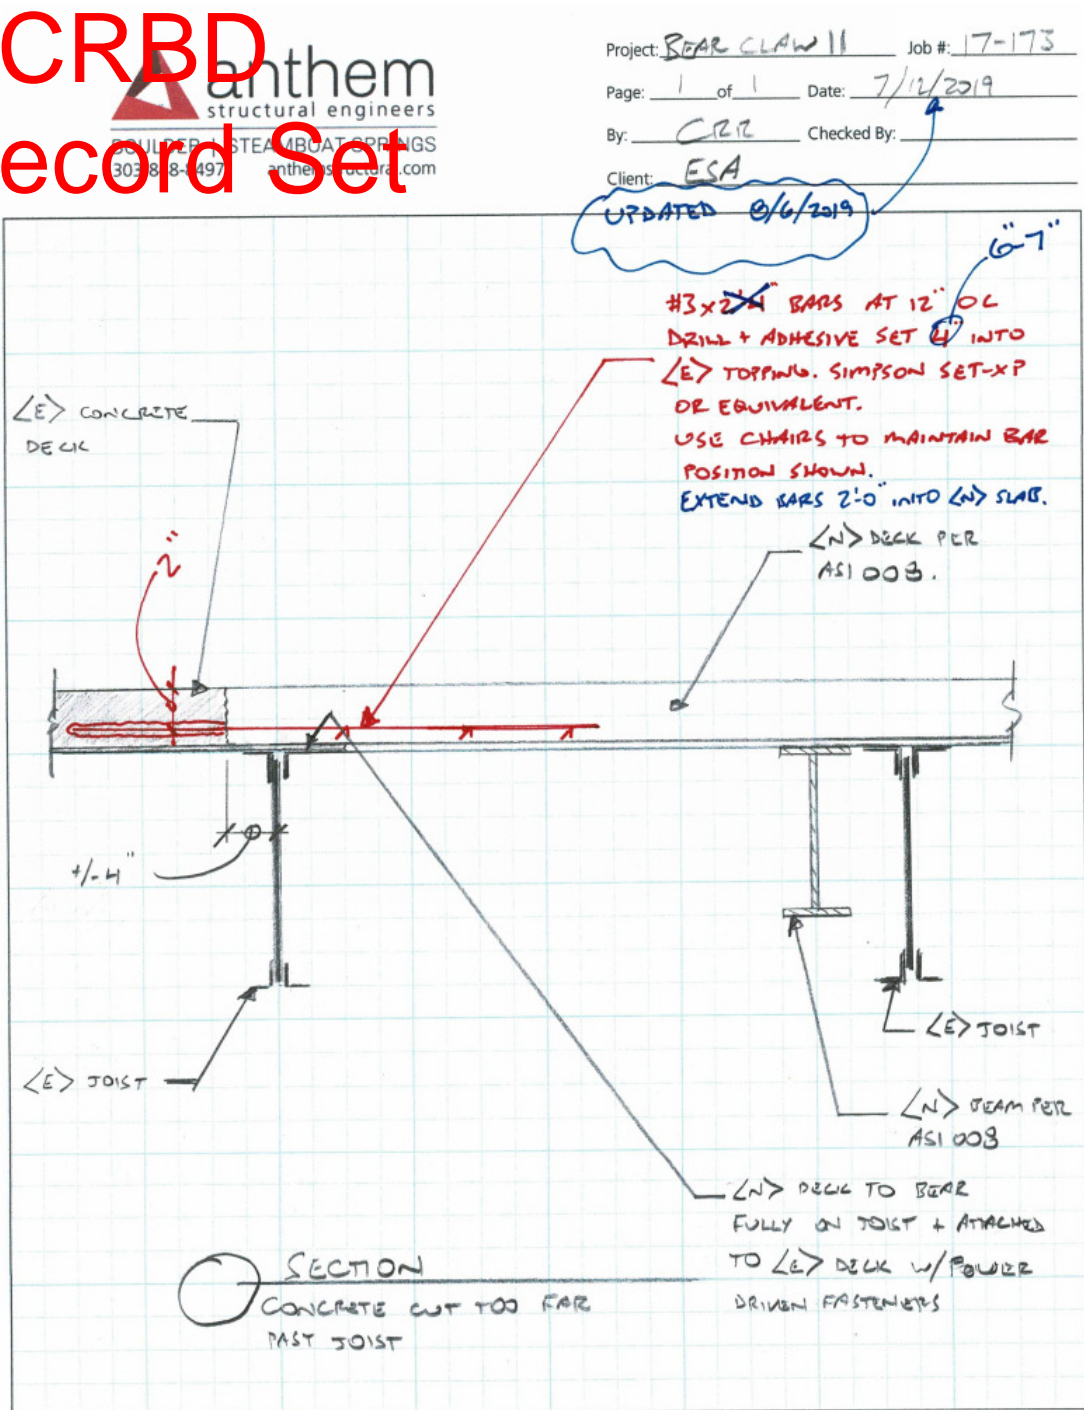 CRBD
ecord Set
anthem
structural engineers
BOULDER | STEAMBOAT SPRINGS
anthemstructural.com
Project: BEAR CLAW II Job #: 17-173
Page: 1 of 1 Date: 7/12/2019
By: CRR Checked By:
Client: ESA
UPDATED 8/6/2019
6-7"
#3 x 2'4" BARS AT 12" OC
DRILL + ADHESIVE SET 4" INTO
<E> TOPPING. SIMPSON SET-XP
OR EQUIVALENT.
USE CHAIRS TO MAINTAIN BAR
POSITION SHOWN.
EXTEND BARS 2'-0" INTO <N> SLAB.
<E> CONCRETE
DECK
2"
<N> DECK PER
ASI 003.
+/-4"
<E> JOIST
<E> JOIST
<N> BEAM PER
ASI 003
<N> DECK TO BEAR
FULLY ON JOIST + ATTACHED
TO <E> DECK W/ POWDER
DRIVEN FASTENERS
SECTION
CONCRETE CUT TOO FAR
PAST JOIST